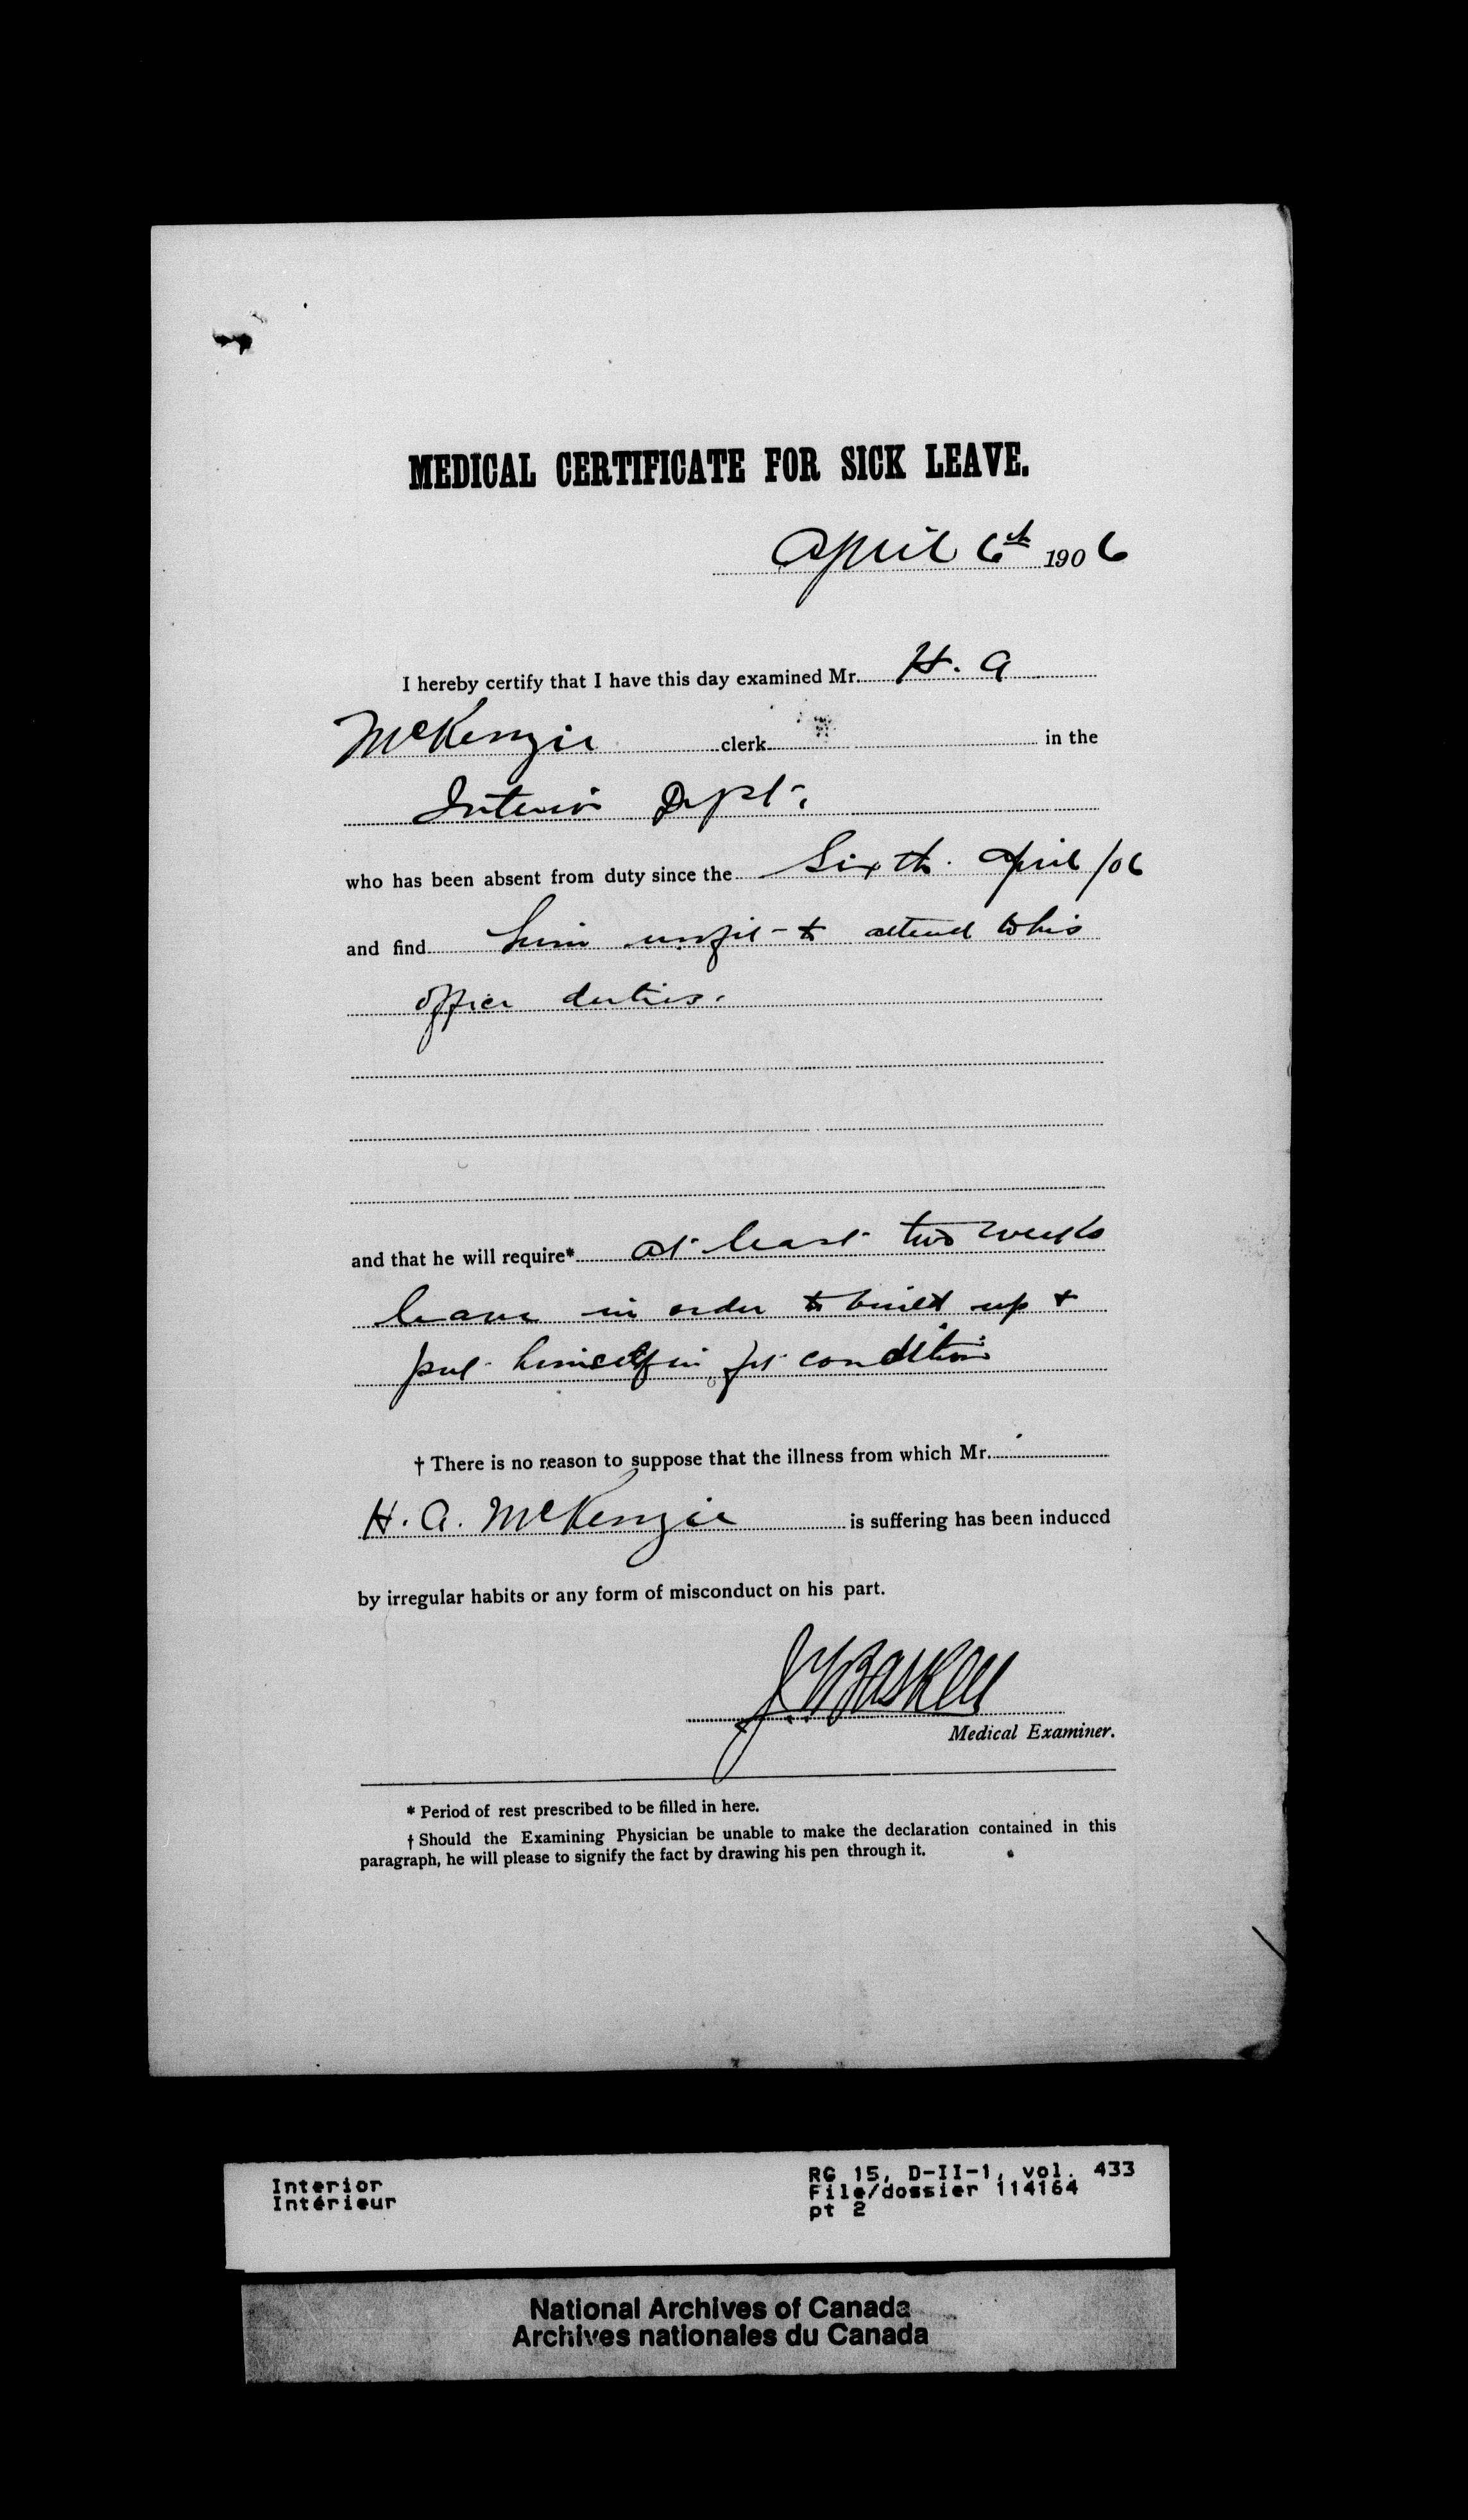 MEDICAL CERTIFICATE FOR SICK LEAVE.
April 6th 1906
I hereby certify that I have this day examined Mr. H. A
McKenzie clerk in the
Interior Dept.
who has been absent from duty since the Sixth April /06
and find him unfit to attend to his
office duties.
and that he will require* at least two weeks
leave in order to build up +
put himself in fit condition
† There is no reason to suppose that the illness from which Mr.
H. A. McKenzie is suffering has been induced
by irregular habits or any form of misconduct on his part.
Medical Examiner.
* Period of rest prescribed to be filled in here.
† Should the Examining Physician be unable to make the declaration contained in this
paragraph, he will please to signify the fact by drawing his pen through it.
Interior
Intérieur
RG 15, D-II-1, vol. 433
File/dossier 114164
pt 2
National Archives of Canada
Archives nationales du Canada